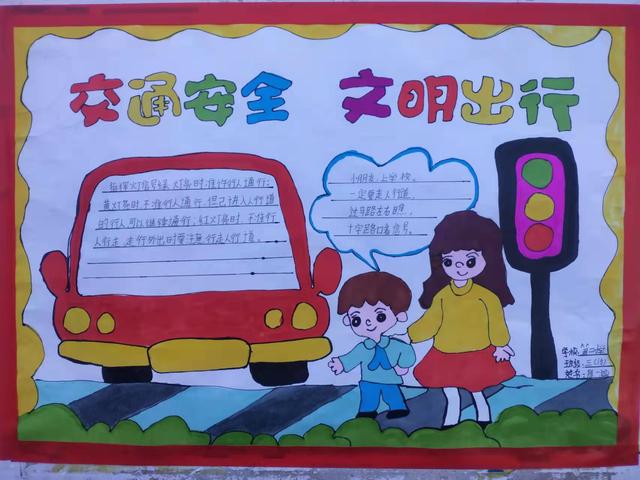 交通安全 文明出行
指挥灯信号绿灯亮时,准许行人通行;
黄灯亮时不准行人通行,但已进入人行道
的行人可以继续通行;红灯亮时,不准行
人行走,走行外出时要注意行走人行道。
小朋友,上学校,
一定要走人行道,
过马路左右瞧,
十字路口看信号。
学校:
班级:
姓名: